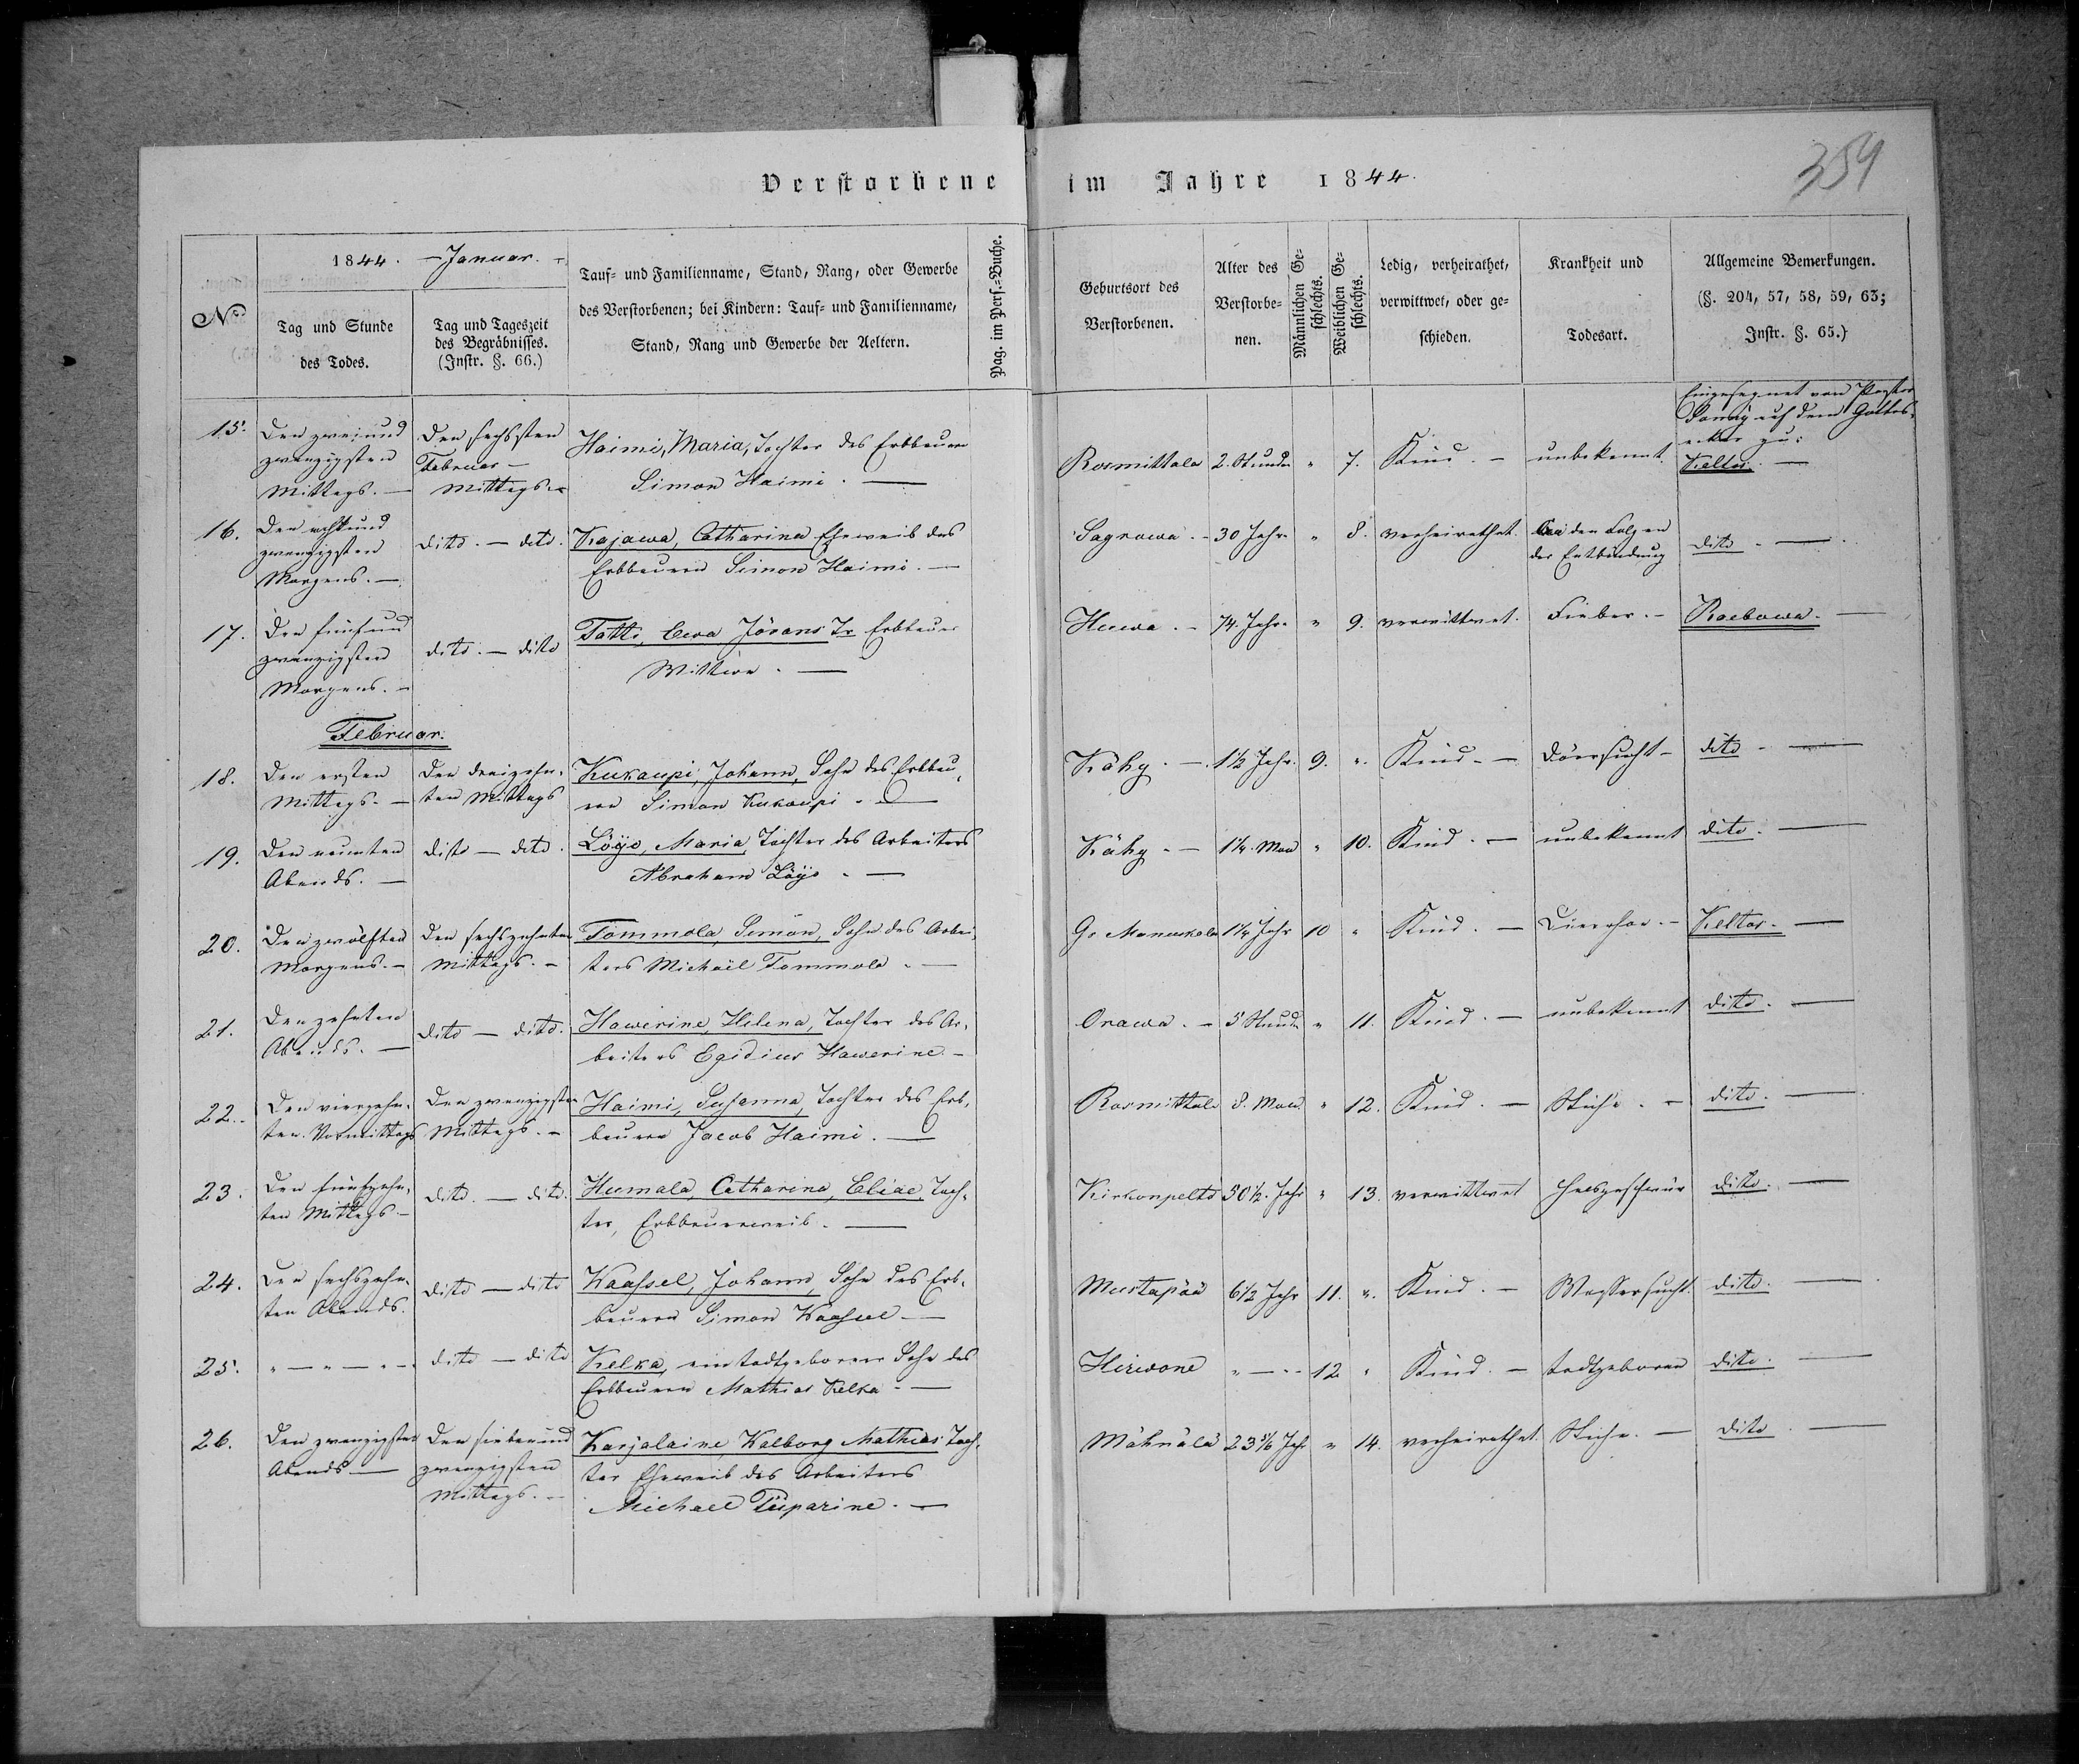 Verstorbene im Jahre 1844.
354
No
1844. – Januar. –
Tag und Stunde
des Todes.
Tag und Tageszeit
des Begräbnisses.
(Instr. §. 66.)
Tauf- und Familienname, Stand, Rang, oder Gewerbe
des Verstorbenen; bei Kindern: Tauf- und Familienname,
Stand, Rang und Gewerbe der Aeltern.
Pag. im Pers.-Buche.
Geburtsort des
Verstorbenen.
Alter des
Verstorbe-
nen.
Männlichen Ge-
schlechts.
Weiblichen Ge-
schlechts.
Ledig, verheirathet,
verwittwet, oder ge-
schieden.
Krankheit und
Todesart.
Allgemeine Bemerkungen.
(§. 204, 57, 58, 59, 63;
Instr. §. 65.)
15.
Den zwei und
zwanzigsten
Mittags. –
Den sechsten
Februar –
Mittags. –
Haimi, Maria, Tochter des Erbbauern
Simon Haimi. –
Rosmittala
2. Stunden
" 7.
Kind. –
unbekannt.
Eingesegnet von Pastor
auf dem Gottes-
acker zu:
Keltos. –
16.
Den acht und
zwanzigsten
Morgens. –
dito. – dito.
Kajawa, Catharina Eheweib des
Erbbauern Simon Haimi. –
Sagrowa. –
30 Jahr.
" 8.
verheirathet.
den Folgen
der Entbindung
dito. –
17.
Den fünf und
zwanzigsten
Morgens. –
dito. – dito
Totti, Ewa Jörans Tr Erbbauer
Wittwe. –
Huwa. –
74. Jahr.
" 9.
verwittwet.
Fieber. –
Roebowa. –
Februar.
18.
Den ersten
Mittags. –
Den dreizehn-
ten Mittags
Kukaupi, Johann, Sohn des Erbbau-
ern Simon Kukaupi. –
Kähy. –
1 1/2 Jahr.
9. ".
Kind. –
Dörrsucht –
dito –
19.
Den neunten
Abends. –
dito – dito.
Löyö, Maria Tochter des Arbeiters
Abraham Löyö. –
Kähy. –
1 1/4. Mon
" 10.
Kind. –
unbekannt
dito. –
20.
Den zwölften
Morgens. –
Den sechszehnten
Mittags. –
Tommola, Simon, Sohn des Arbei-
ters Michaël Tommola. –
Gr Manuskala
1 1/4 Jahr
10 "
Kind. –
Keltos. –
21.
Den zehnten
Abends. –
dito – dito.
Hawerine, Helena, Tochter des Ar-
beiters Egidius Hawerine –
Orawa. –
5 Stund.
" 11.
Kind. –
unbekannt
dito. –
22.
Den vierzehn-
ten. Vormittags
Den zwanzigsten
Mittags. –
Haimi, Susanna, Tochter des Erb-
bauern Jacob Haimi. –
Rosmittala
8. Mon.
" 12.
Kind. –
Stiche. –
dito. –
23.
Den fünfzehn-
ten Mittags –
dito. – dito.
Humala, Catharina, Eliae Toch-
ter, Erbbauerweib. –
Kirkonpelto
50 1/2. Jahr
" 13.
verwittwet
Halsgeschwür
dito. –
24.
Den sechszehn-
ten Abends.
dito – dito
Waassel, Johann, Sohn des Erb-
bauern Simon Waassel –
Mustapää
6 1/2 Jahr
11. ".
Kind. –
Wassersucht.
dito. –
25.
" – " – " –
dito – dito
Kelka, ein todtgeborner Sohn des
Erbbauern Mathias Kelka. –
Hirwone
" – –
12 "
Kind. –
todtgeboren
dito. –
26.
Den zwanzigsten
Abends –
Den sieben und
zwanzigsten
Mittags. –
Karjalaine, Walborg Mathias Toch-
ter Eheweib des Arbeiters
Michael Tuparine. –
Mähnälä
23 1/6 Jahr
" 14.
verheirathet.
Stiche. –
dito. –